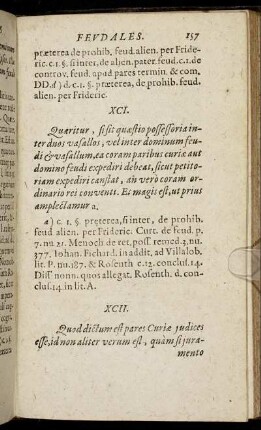 FEVDALES. 157
præterea de prohib. feud. alien. per Fride-
ric. c. 1. §. si inter, de alien. pater. feud. c. 1. de
controv. feud. apud pares termin. & com.
DD. d) d. c. 1. §. præterea, de prohib. feud.
alien. per Frideric.
XCI.
Quæritur, si sit quæstio possessoria in-
ter duos vasallos, vel inter dominum feu-
di & vasallum, ea coram paribus curiæ aut
domino feudi expediri debeat, sicut petito-
riam expediri constat, an verò coram or-
dinario rei conventi. Et magis est, ut prius
amplectamur a.
a) c. 1. §. præterea, si inter, de prohib.
feud alien. per Frideric. Curt. de feud. p.
7. nu 21. Menoch de ret. poss. remed. 3. nu.
377. Iohan. Fichard. in addit. ad Villalob.
lit. P. nu. 187. & Rosenth c. 12. conclus. 14.
Diss nonn. quos allegat. Rosenth. d. con-
clus. 14. in lit. A.
XCII.
Quod dictum est pares Curiæ judices
esse, id non aliter verum est, quàm si jura-
mento